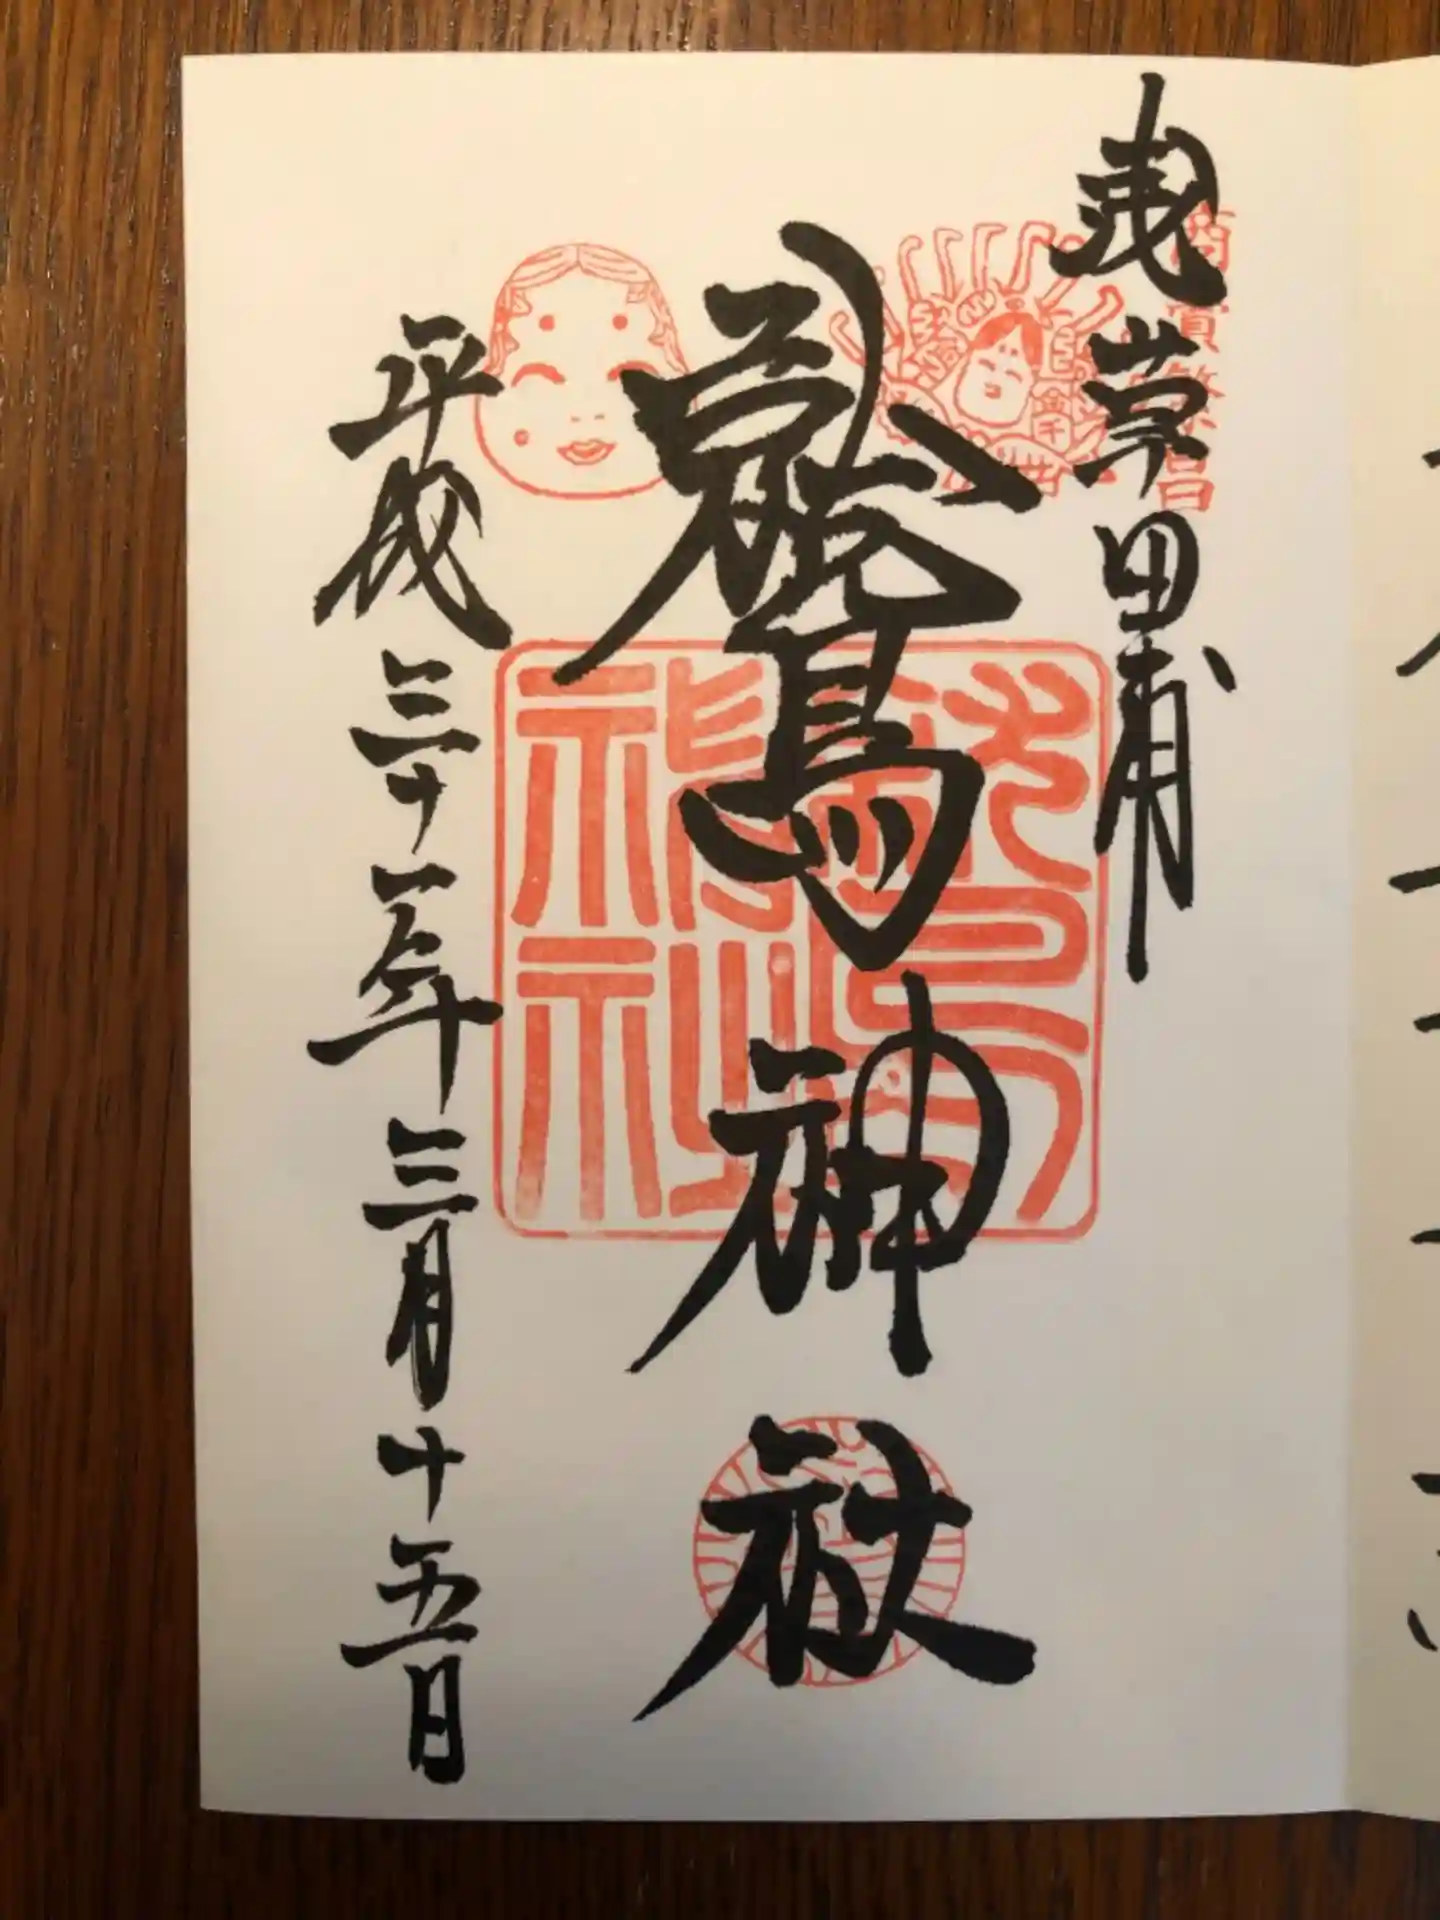 浅草田甫
商賣繁昌
鷲神社
鷲神社
平成三十一年三月十五日